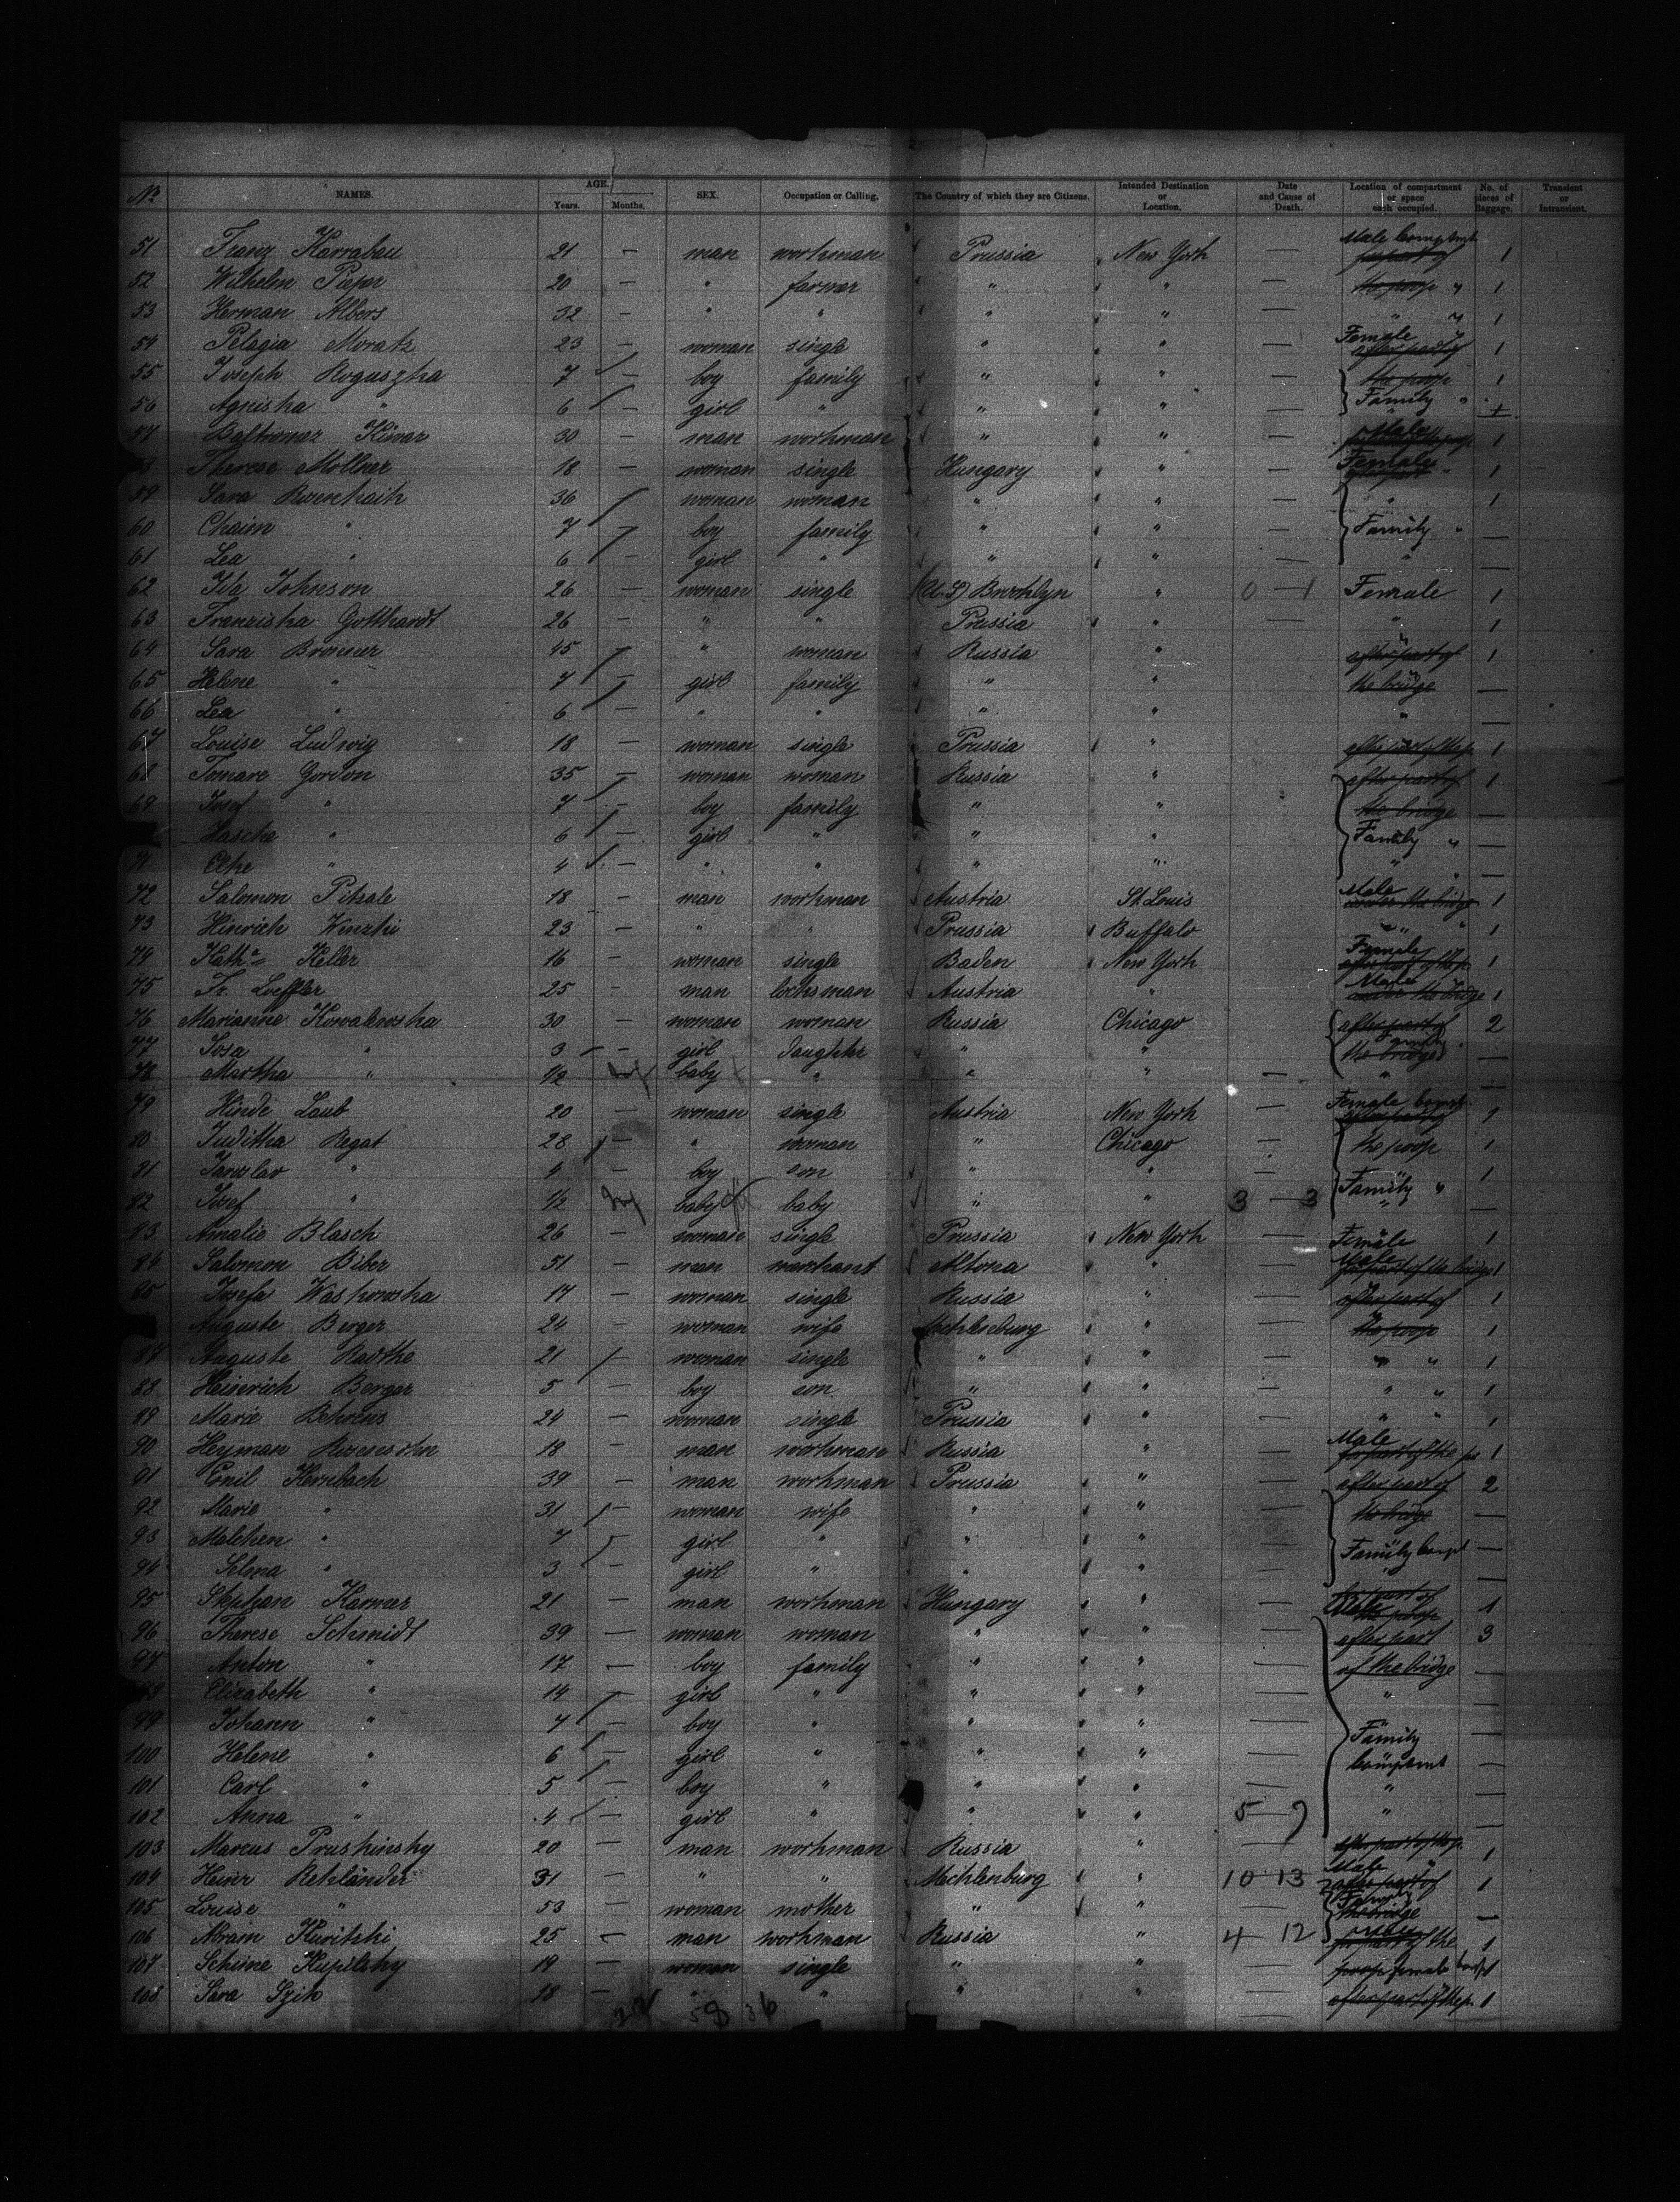 No. NAMES. AGE. Years. Months. SEX. Occupation or Calling. The Country of which they are Citizens. Intended Destination or Location. Date and Cause of Death. Location of compartment or space each occupied. No. of pieces of Baggage. Transient or Intransient.
51 Franz Karrabau 21 — man workman Prussia New York — Male Comptmt 1
52 Wilhelm Pieper 20 — " farmer " " — the poop " 1
53 Herman Albers 32 — " " " " — " " 1
54 Pelagia Moratz 23 — woman single " " — Female " after part of 1
55 Joseph Roguszka 7 — boy family " " — the poop 1
56 Agniska " 6 — girl " " " — Family "
57 Baltromez 30 — man workman " " — Male 1
58 Therese Mollner 18 — woman single Hungary " — Female 1
59 Sara 36 — woman woman " " — " 1
60 Chaim " 7 — boy family " " — Family " —
61 Lea " 6 — girl " " " " —
62 Ida Johnson 26 — woman single (U.S) Brooklyn " 0 — 1 Female 1
63 Franziska Gotthardt 26 — " " Prussia " " 1
64 Sara Bronner 45 — " woman Russia " after part of 1
65 Helene " 7 — girl family " " the bridge —
66 Lea " 6 — " " " " " —
67 Louise Ludwig 18 — woman single Prussia " after part of the p. 1
68 Tomare Gordon 35 — woman woman Russia " after part of 1
69 Josef " 7 — boy family " " the bridge —
Hascha " 6 — girl " " " Family " —
71 Elke " 4 — " " " " " —
72 Salomon Pitzele 18 — man workman Austria St. Louis Male under the bridge 1
73 Hinrich Winzki 23 — " " Prussia Buffalo " " 1
74 Kath. Keller 16 — woman single Baden New York Female 1
75 Fr. Loeffler 25 — man locksman Austria " Male under the bridge 1
76 Marianne Kowalewska 30 — woman woman Russia Chicago after part of 2
77 Josa " 3 — girl daughter " " the bridge —
78 Martha " 1/2 baby " " " — " —
79 Hinde Laub 20 — woman single Austria New York — Female Compt. 1
80 Juditha Regat 28 — " woman " Chicago — the poop 1
81 Jaroslav " 4 — boy son " " — " 1
82 Josef " 1/2 baby baby " " 3 — 3 Family " —
83 Amalie Blasch 26 — woman single Prussia New York — Female 1
84 Salomon Biber 51 — man marchant Altona " — Male 1
85 Josefa Waskowska 17 — woman single Russia " — after part of 1
Auguste Berger 24 — woman wife Mecklenburg " — the poop 1
87 Auguste Radthe 21 — woman single " " — " " 1
88 Heinrich Berger 5 — boy son " " — " " 1
89 Marie Behrens 24 — woman single Prussia " — " " 1
90 Heyman Rosensohn 18 — man workman Russia " — Male 1
91 Emil Hornbach 39 — man workman Prussia " — after part of 2
92 Marie " 31 — woman wife " " — the bridge —
93 Malchen " 7 — girl " " " — Family Compt —
94 Selma " 3 — girl " " " — " —
95 Stephan Karner 21 — man workman Hungary " — Male the poop 1
96 Therese Schmidt 39 — woman woman " " — after part 3
97 Anton " 17 — boy family " " — of the bridge —
98 Elizabeth " 14 — girl " " " — " —
99 Johann " 7 — boy " " " — —
100 Helene " 6 — girl " " " — Family —
101 Carl " 5 — boy " " " — Comptmnt —
102 Anna " 4 — girl " " " 5 — 9 " —
103 Marcus Prushinsky 20 — man workman Russia " — 1
104 Heinr Rehländer 31 — " " Mecklenburg " 10 13 Male after part of 1
105 Louise " 53 — woman mother " " — Family the bridge —
106 Abram Kuritzki 25 — man workman Russia " 4 — 12 1
107 Scheine Kupilsky 19 — woman single " " — poop female 1
108 Sara Szik 18 — " " " " — after part of the p. 1
58 36